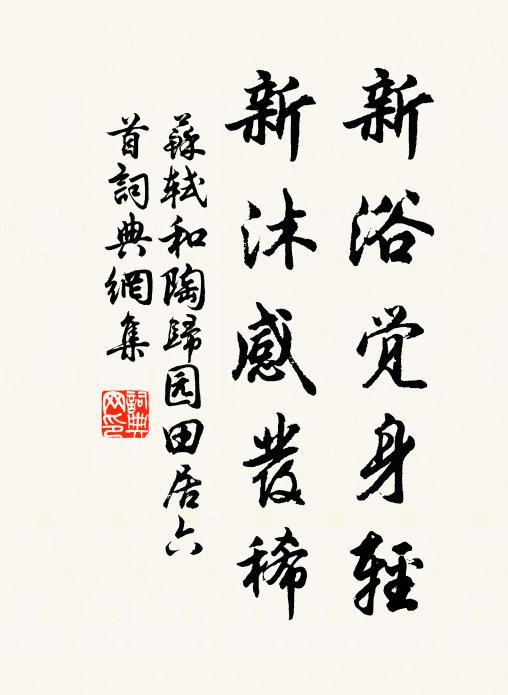 新浴觉身輕
新沐感發稀
蘇轼和陶歸园田居六
首詞典網集
詞典
网印